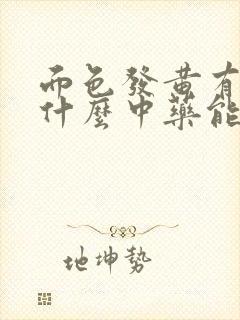 面色發黃有
什麼中藥能
地坤勢